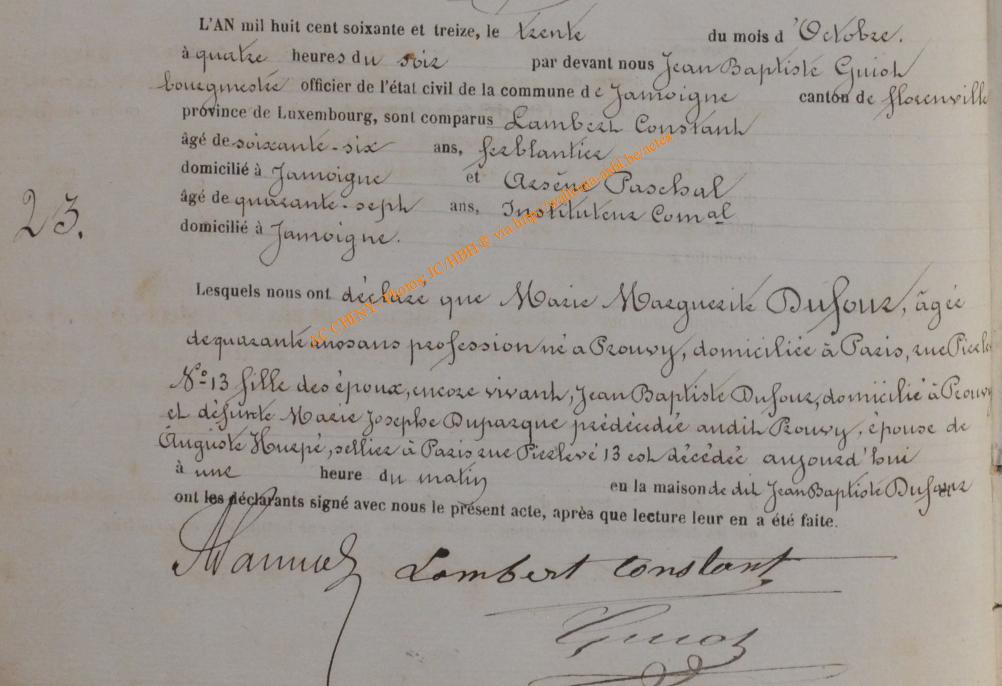 L'AN mil huit cent soixante et treize, le trente du mois d'Octobre.
à quatre heures du soir par devant nous Jean Baptiste Guiot
bourgmestre officier de l'état civil de la commune de Jamoigne canton de florenville
province de Luxembourg, sont comparus Lambert Constant
âgé de soixante-six ans, ferblantier
domicilié à Jamoigne et Arsène Paschal
âgé de quarante-sept ans, Instituteur Comal
domicilié à Jamoigne.
23.
Lesquels nous ont déclaré que Marie Marguerite Dufour, âgée
de quarante ans sans profession né a Prouvy, domiciliée à Paris, rue Pierlevé
No 13 fille des époux, encore vivant, Jean Baptiste Dufour, domicilié à Prouvy
et défunte Marie Josephe Duparque prédécedée audit Prouvy, épouse de
Auguste Hurpé, sellier à Paris rue Pierlevé 13 est décédée aujourd'hui
à une heure du matin en la maison de dit Jean Baptiste Dufour
ont les déclarants signé avec nous le présent acte, après que lecture leur en a été faite.
Lambert Constant
Guiot
AC CHINY - Photos JC HBH © via http://